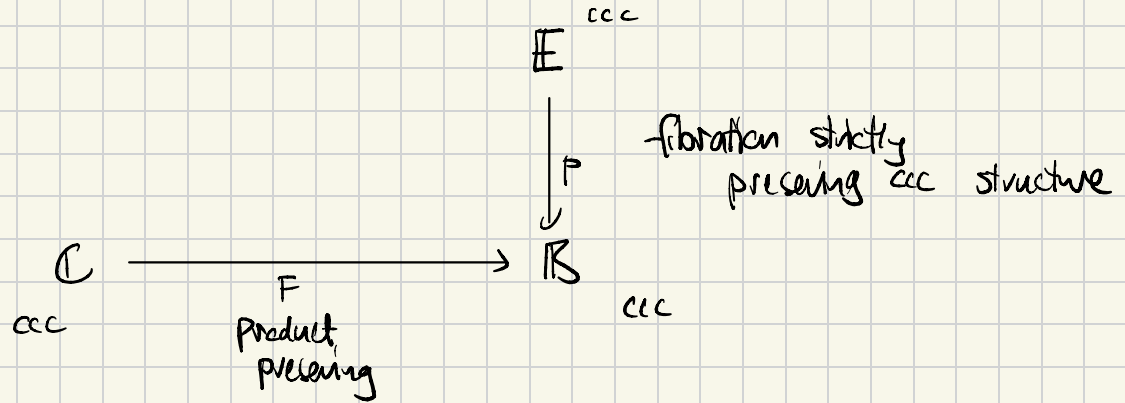 ccc
𝔼
fibration strictly
p
preserving ccc structure
ℂ
𝔹
F
ccc
ccc
product
preserving